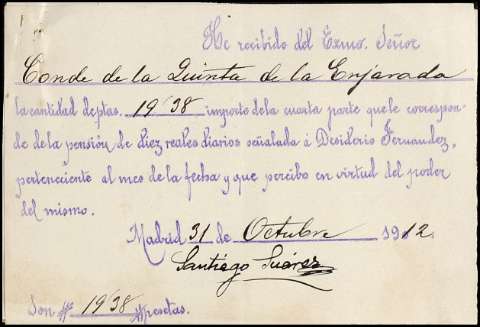 He recibido del Exmo. Señor
Conde de la Quinta de la Enjarada
la cantidad de ptas. 19'38 importe de la cuarta parte que le correspon-
de de la pensión de diez reales diarios señalada á Desiderio Fernandez,
perteneciente al mes de la fecha y que percibo en virtud del poder
del mismo.
Madrid 31 de Octubre 1912.
Santiago Suárez
Son 19'38 pesetas.